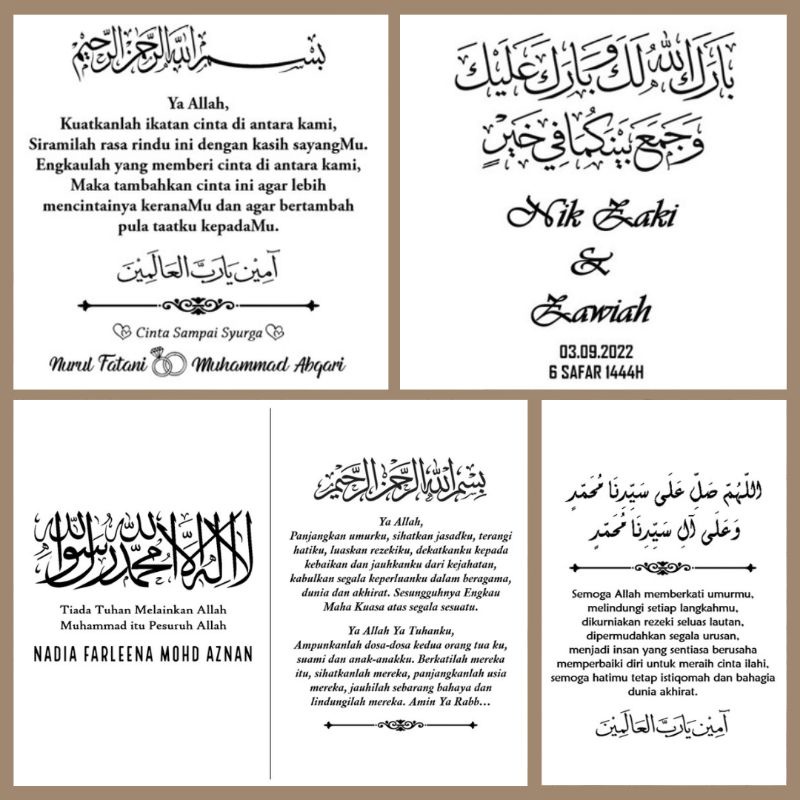 بِسْمِ اللهِ الرَّحْمٰنِ الرَّحِيْمِ
Ya Allah,
Kuatkanlah ikatan cinta di antara kami,
Siramilah rasa rindu ini dengan kasih sayangMu.
Engkaulah yang memberi cinta di antara kami,
Maka tambahkan cinta ini agar lebih
mencintainya keranaMu dan agar bertambah
pula taatku kepadaMu.
آمِيْن يَارَبَّ الْعَالَمِيْنَ
Cinta Sampai Syurga
Nurul Fatani Muhammad Abqari
بَارَكَ اللهُ لَكَ وَبَارَكَ عَلَيْكَ
وَجَمَعَ بَيْنَكُمَا فِي خَيْرٍ
Nik Zaki
&
Zawiah
03.09.2022
6 SAFAR 1444H
لا اله الا الله محمد رسول الله
Tiada Tuhan Melainkan Allah
Muhammad itu Pesuruh Allah
NADIA FARLEENA MOHD AZNAN
بِسْمِ اللهِ الرَّحْمٰنِ الرَّحِيْمِ
Ya Allah,
Panjangkan umurku, sihatkan jasadku, terangi
hatiku, luaskan rezekiku, dekatkanku kepada
kebaikan dan jauhkanku dari kejahatan,
kabulkan segala keperluanku dalam beragama,
dunia dan akhirat. Sesungguhnya Engkau
Maha Kuasa atas segala sesuatu.
Ya Allah Ya Tuhanku,
Ampunkanlah dosa-dosa kedua orang tua ku,
suami dan anak-anakku. Berkatilah mereka
itu, sihatkanlah mereka, panjangkanlah usia
mereka, jauhilah sebarang bahaya dan
lindungilah mereka. Amin Ya Rabb...
اَللّٰهُمَّ صَلِّ عَلَى سَيِّدِنَا مُحَمَّدٍ
وَعَلَى آلِ سَيِّدِنَا مُحَمَّدٍ
Semoga Allah memberkati umurmu,
melindungi setiap langkahmu,
dikurniakan rezeki seluas lautan,
dipermudahkan segala urusan,
menjadi insan yang sentiasa berusaha
memperbaiki diri untuk meraih cinta ilahi,
semoga hatimu tetap istiqomah dan bahagia
dunia akhirat.
آمِيْن يَارَبَّ الْعَالَمِيْنَ